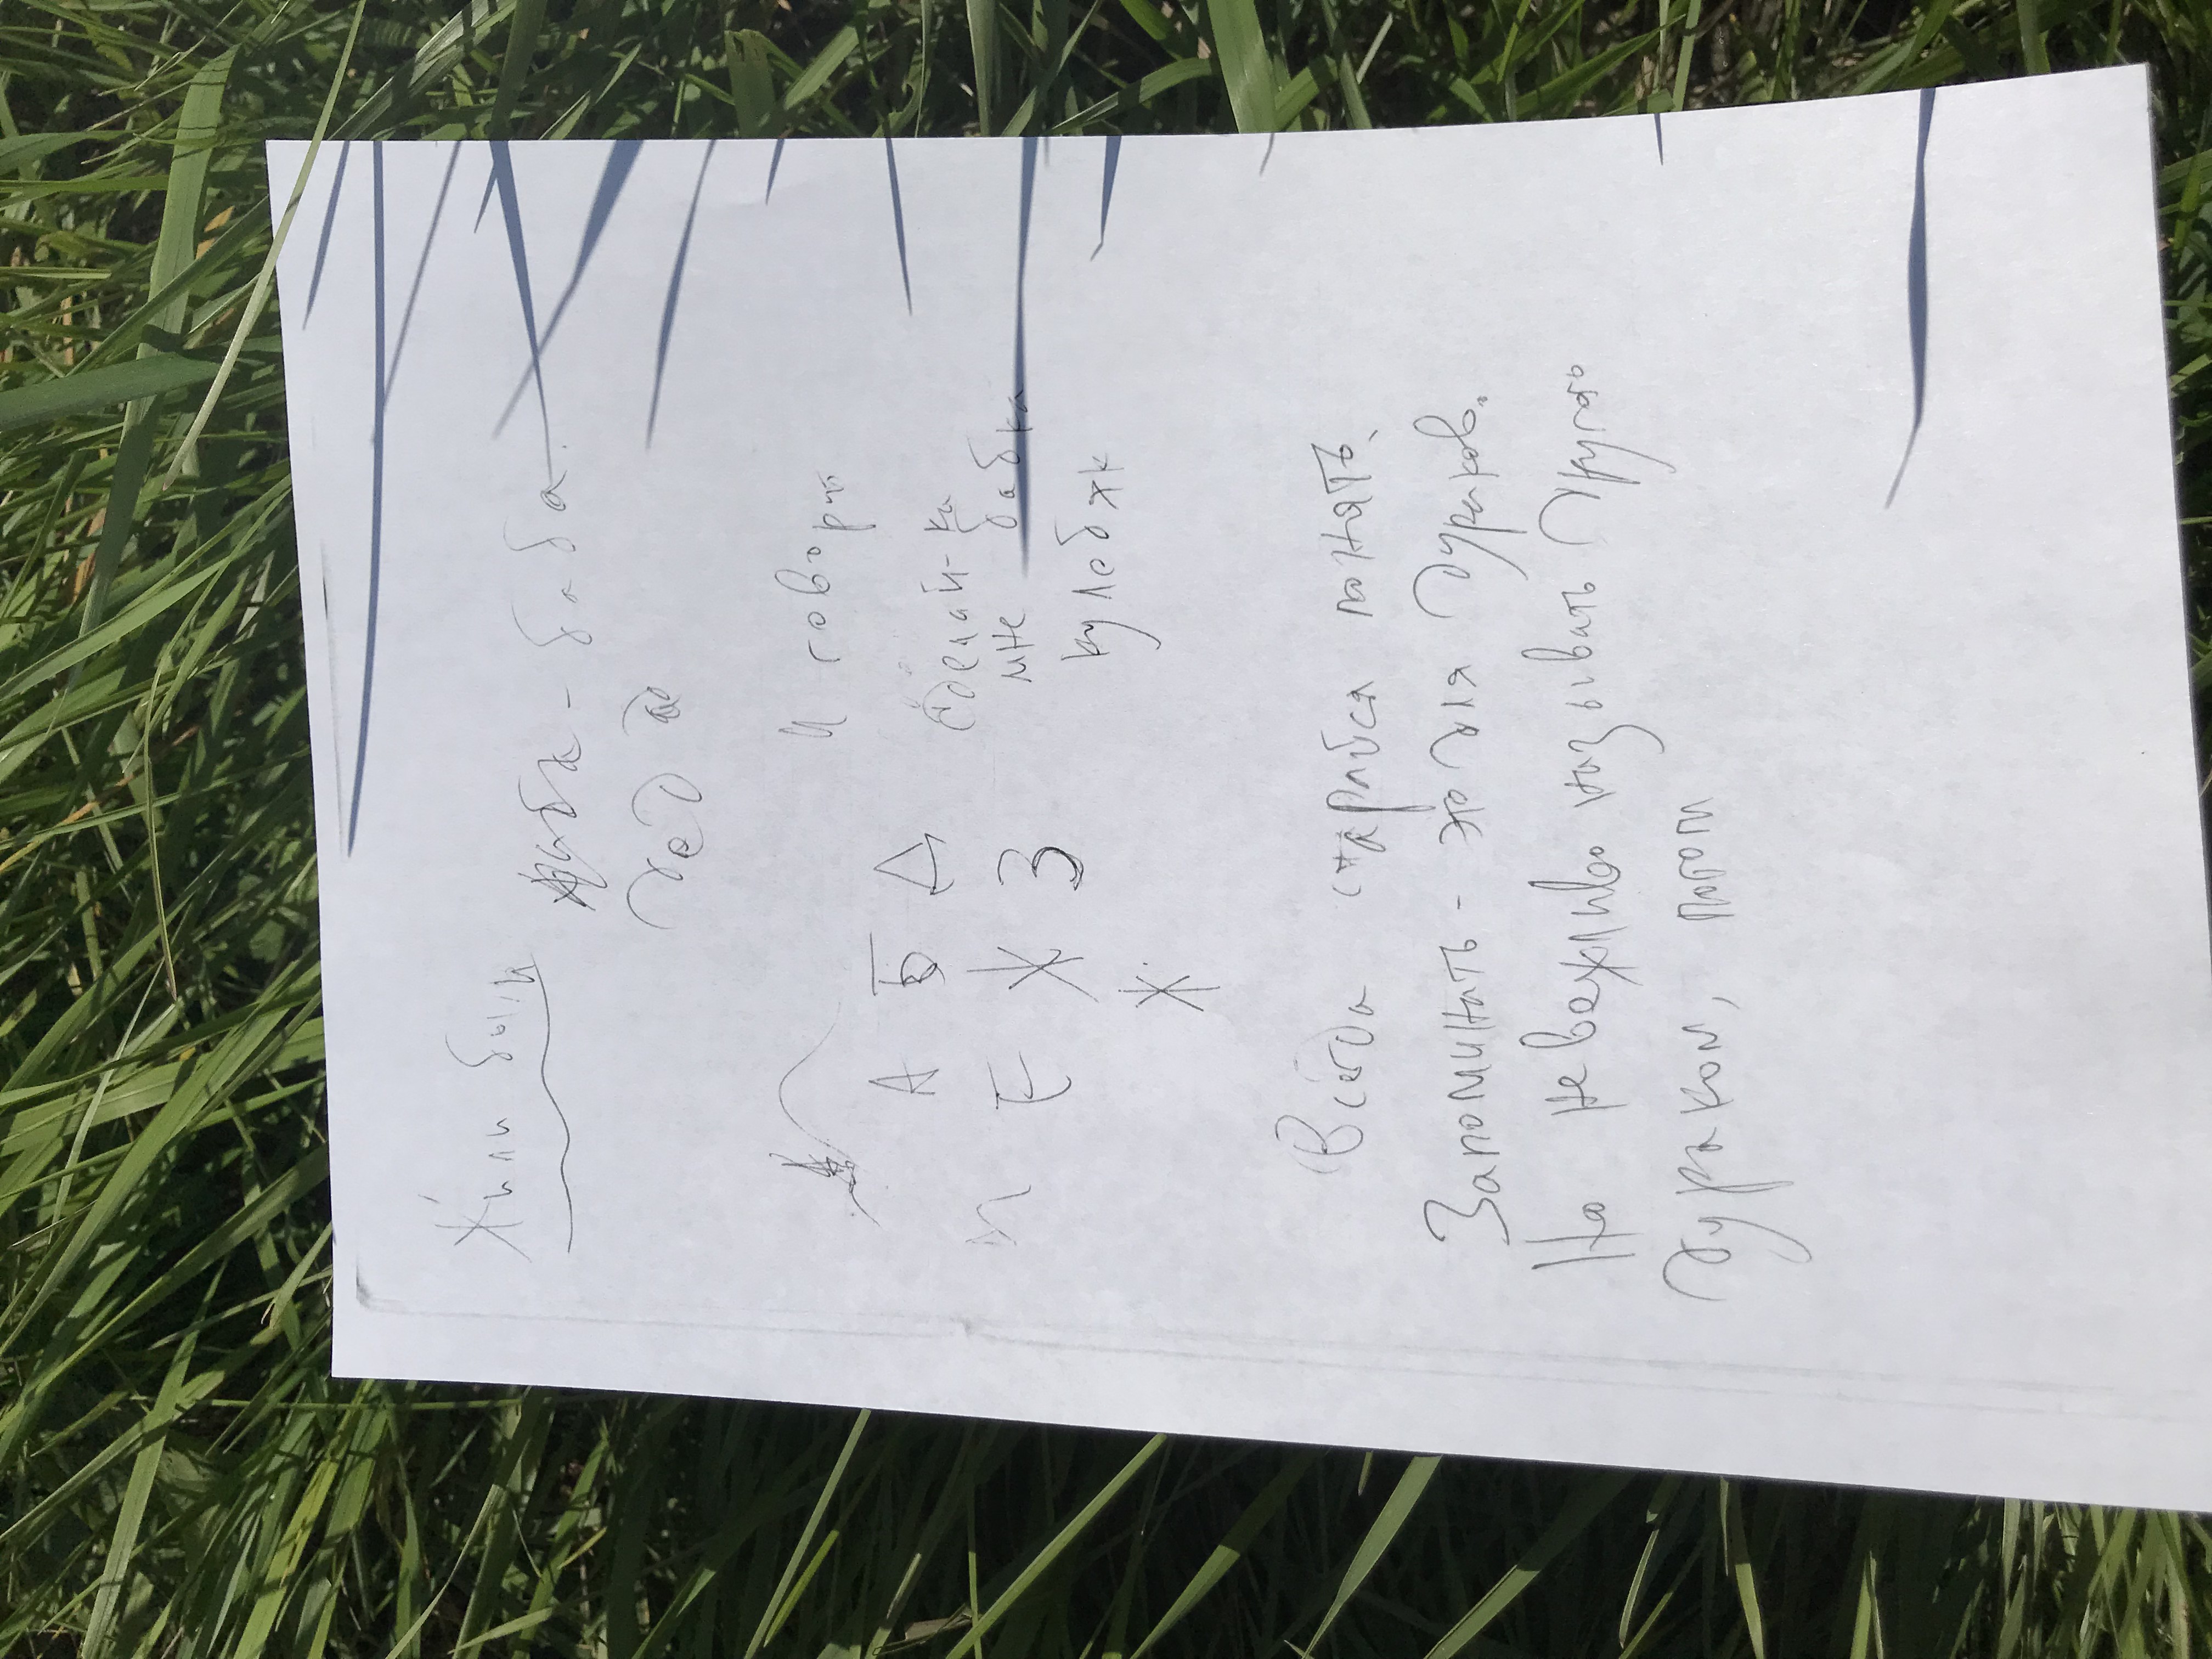 Жили были
жаба - баба.
дед
И говорит
А Б Д
Сделай-ка
мне бабка
Е Ж З
кулебяк
Ж
Всегда старайся понять.
Запоминать - это для дураков.
Но невежливо называть другого
дураком, потом